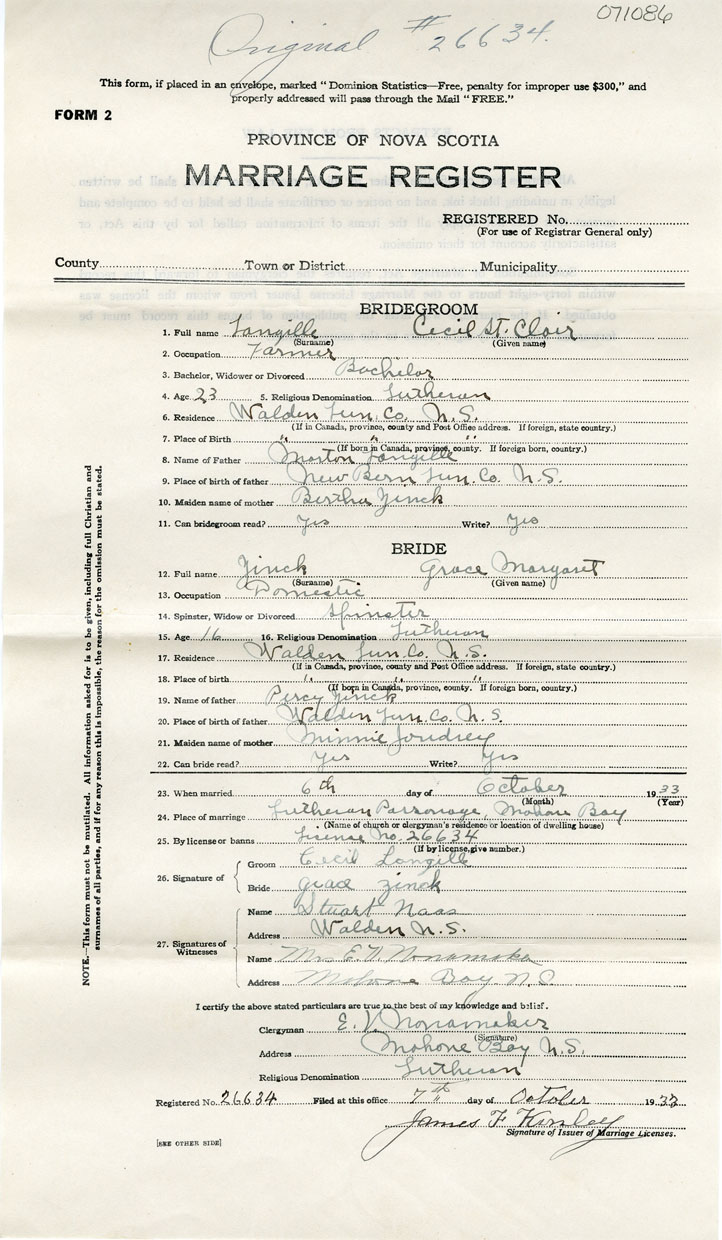 071086
Original # 26634.
This form, if placed in an envelope, marked "Dominion Statistics—Free, penalty for improper use $300," and
properly addressed will pass through the Mail "FREE."
FORM 2
PROVINCE OF NOVA SCOTIA
MARRIAGE REGISTER
REGISTERED No.
(For use of Registrar General only)
County Town or District Municipality
BRIDEGROOM
1. Full name Langille Cecil St. Clair
(Surname) (Given name)
2. Occupation Farmer
3. Bachelor, Widower or Divorced Bachelor
4. Age 23 5. Religious Denomination Lutheran
6. Residence Walden Lun. Co. N.S.
(If in Canada, province, county and Post Office address. If foreign, state country.)
7. Place of Birth " " "
(If born in Canada, province, county. If foreign born, country.)
8. Name of Father Morton Langille
9. Place of birth of father New Bern Lun. Co. N.S.
10. Maiden name of mother Bertha Zinck
11. Can bridegroom read? Yes Write? Yes
BRIDE
12. Full name Zinck Grace Margaret
(Surname) (Given name)
13. Occupation Domestic
14. Spinster, Widow or Divorced Spinster
15. Age 16 16. Religious Denomination Lutheran
17. Residence Walden Lun. Co. N.S.
(If in Canada, province, county and Post Office address. If foreign, state country.)
18. Place of birth " " "
(If born in Canada, province, county. If foreign born, country.)
19. Name of father Percy Zinck
20. Place of birth of father Walden Lun. Co. N.S.
21. Maiden name of mother Minnie Joudrey
22. Can bride read? Yes Write? Yes
23. When married 6th day of October 1933
(Month) (Year)
24. Place of marriage Lutheran Parsonage, Mahone Bay
(Name of church or clergyman's residence or location of dwelling house)
25. By license or banns License No. 26634
(If by license, give number.)
26. Signature of Groom Cecil Langille
Bride Grace Zinck
27. Signatures of Witnesses
Name Stuart Naas
Address Walden N.S.
Name Mrs E. V. Nonamaker
Address Mahone Bay N.S.
I certify the above stated particulars are true to the best of my knowledge and belief.
Clergyman E. V. Nonamaker
(Signature)
Address Mahone Bay N.S.
Religious Denomination Lutheran
Registered No. 26634 Filed at this office 7th day of October 1933
James F Kinley
Signature of Issuer of Marriage Licenses.
[SEE OTHER SIDE]
NOTE.—This form must not be mutilated. All information asked for is to be given, including full Christian and
surnames of all parties, and if for any reason this is impossible, the reason for the omission must be stated.